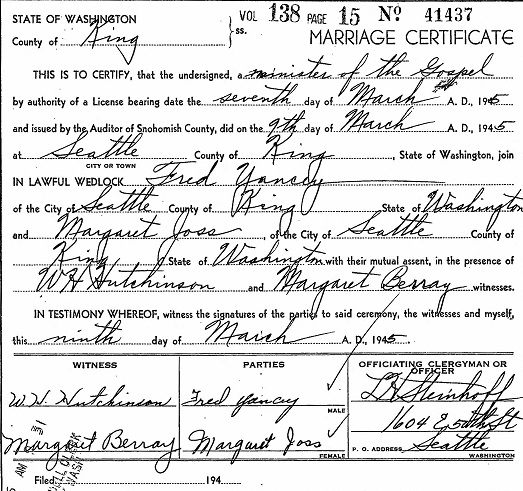 STATE OF WASHINGTON
VOL 138 PAGE 15 Nº 41437
County of King ss.
MARRIAGE CERTIFICATE
THIS IS TO CERTIFY, that the undersigned, a minister of the Gospel
by authority of a License bearing date the seventh day of March A. D., 1945
and issued by the Auditor of Snohomish County, did on the 9th day of March A. D., 1945
at Seattle County of King, State of Washington, join
CITY OR TOWN
IN LAWFUL WEDLOCK Fred Yancey
of the City of Seattle County of King State of Washington
and Margaret Joss of the City of Seattle County of
King State of Washington with their mutual assent, in the presence of
W H Hutchinson and Margaret Berray witnesses.
IN TESTIMONY WHEREOF, witness the signatures of the parties to said ceremony, the witnesses and myself,
this ninth day of March A. D., 1945
WITNESS PARTIES OFFICIATING CLERGYMAN OR OFFICER
W. H. Hutchinson Fred Yancy Steinhoff
MALE
1604 E. 50th St
Margaret Berray Margaret Joss Seattle
FEMALE P. O. ADDRESS WASHINGTON
Filed 194